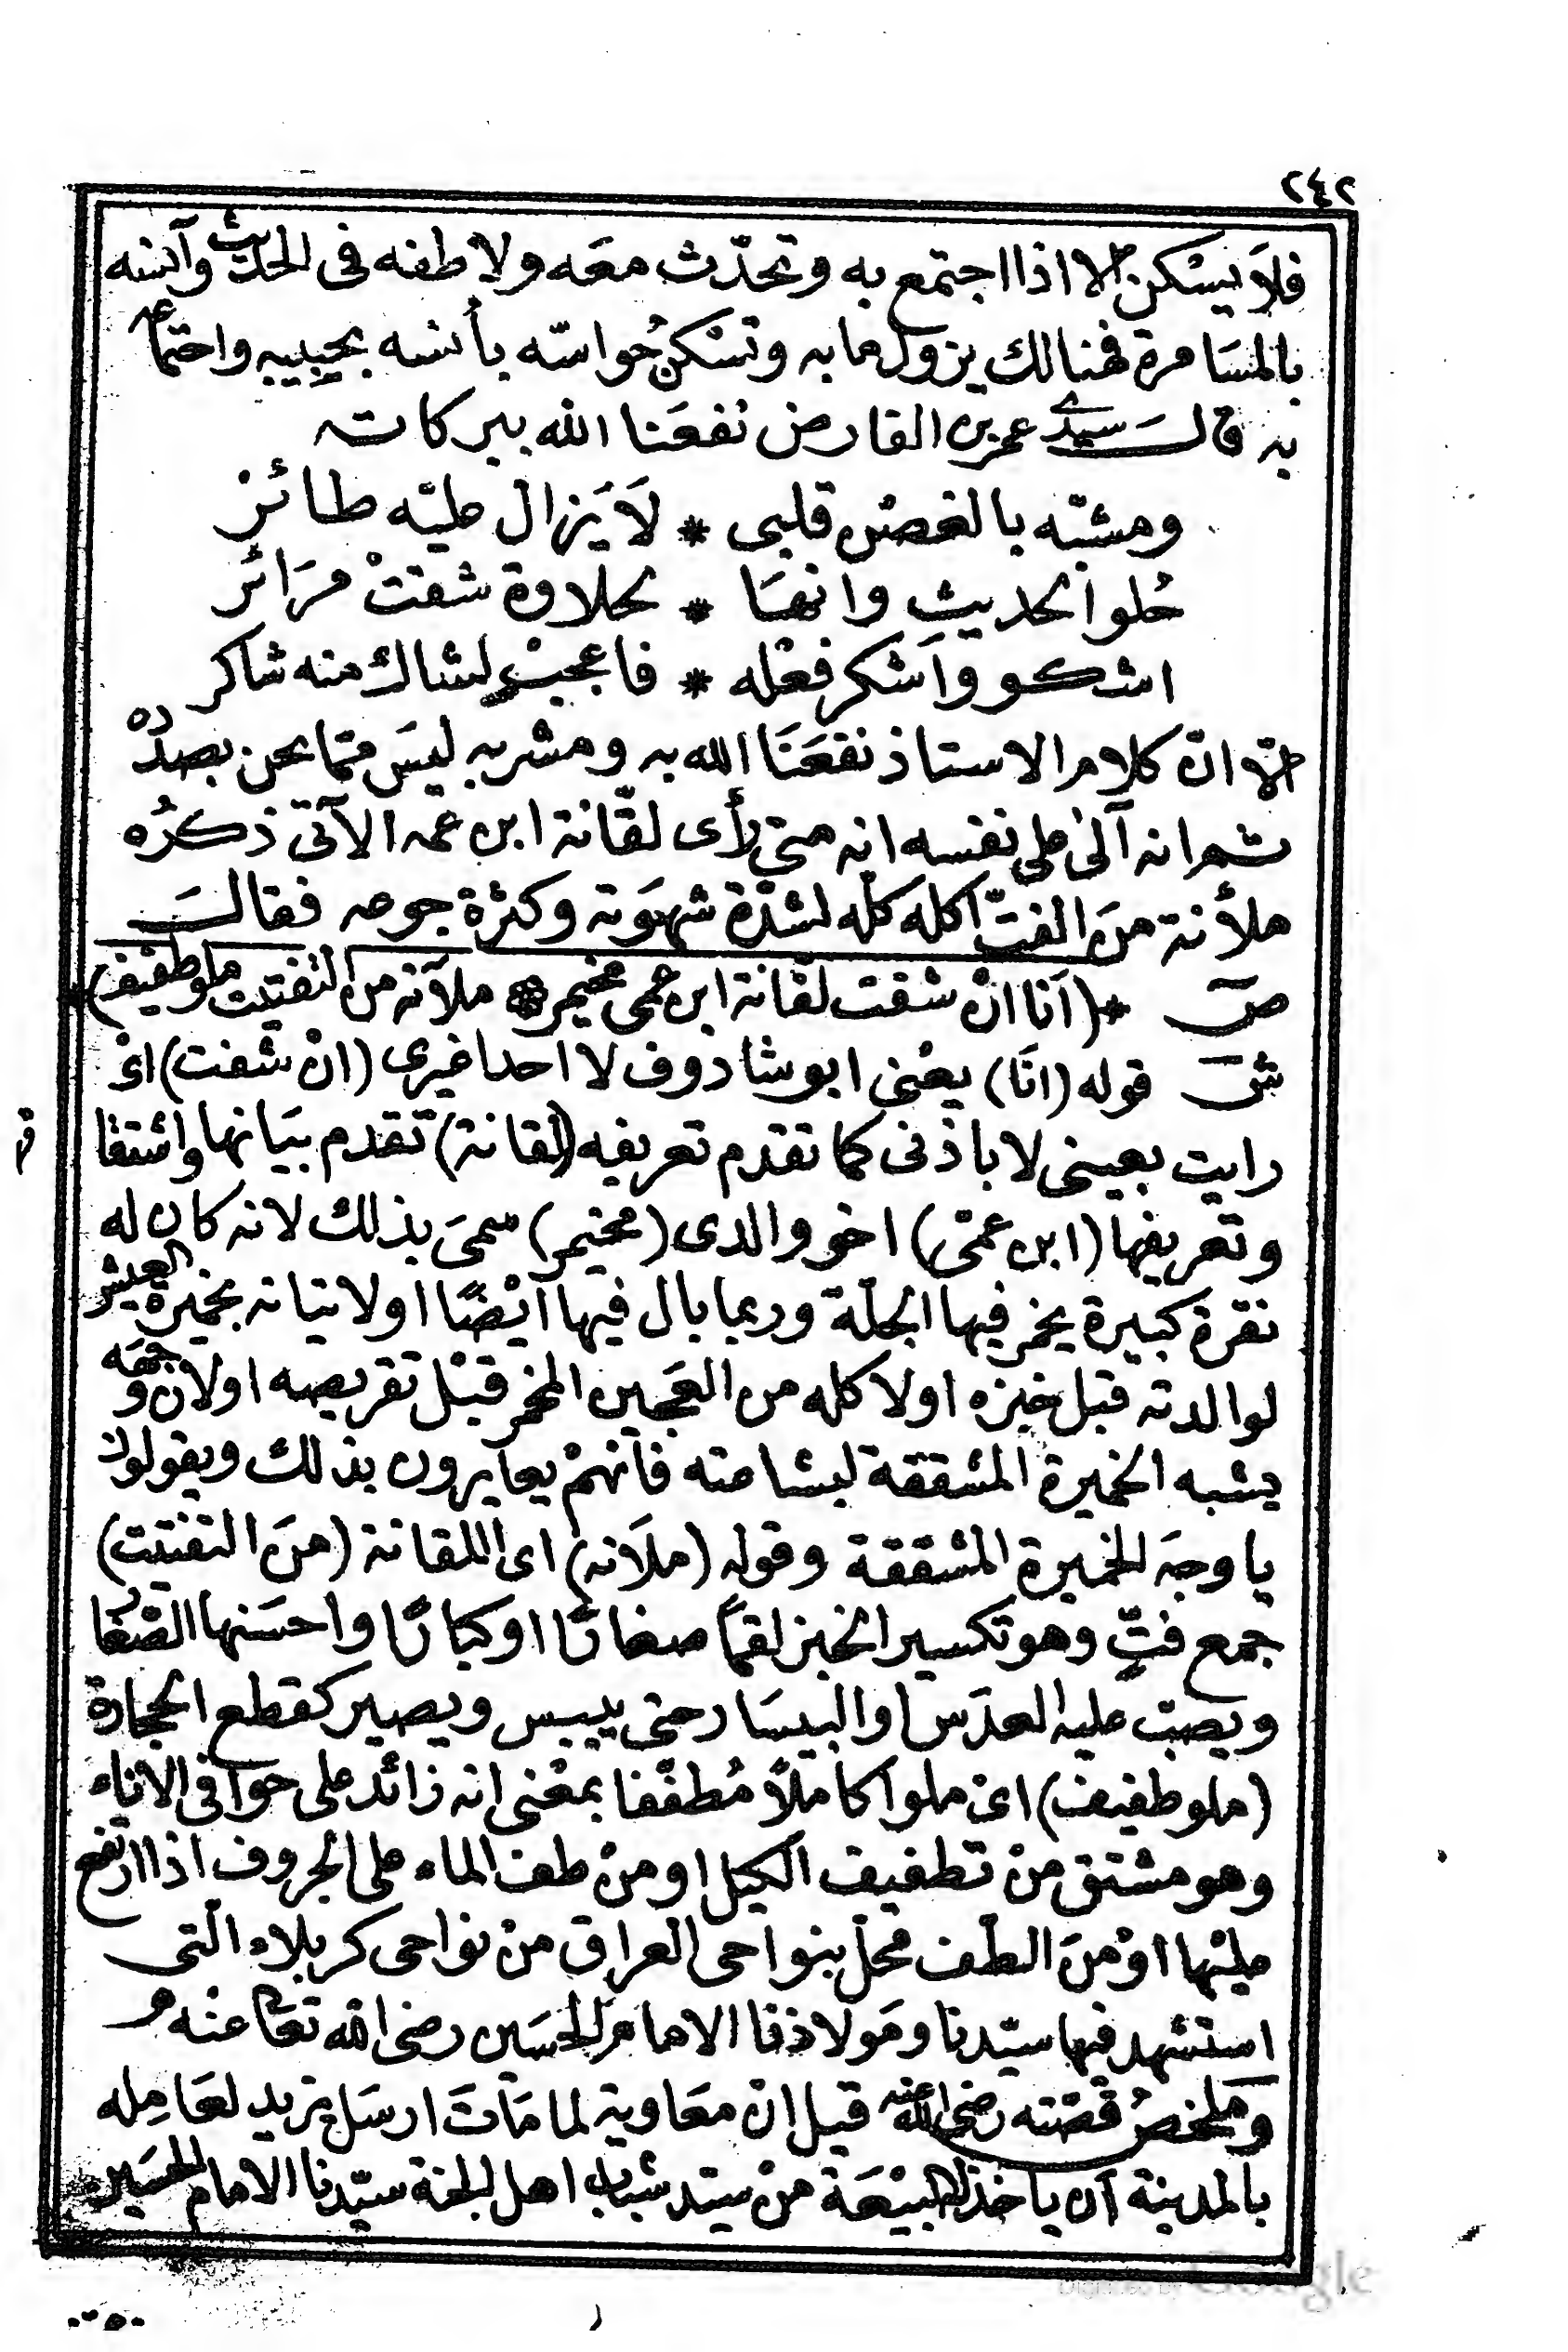 ٢٤٢
فلا يسكن الا اذا اجتمع به وتحدّث معه ولاطفه فى الحديث وآنسه
بالمسامرة فهنالك يزول ما به وتسكن حواسّه بأنسه بحبيبه واجتماعه
به قال سيدى عمر بن الفارض نفعنا الله ببركاته
ومشبّه بالغصن قلبى * لا يزال عليه طائر
حلو الحديث وانها * لحلاوة شقت مرائر
اشكو واشكر فعله * فاعجب لشاك منه شاكر
الّا انّ كلام الاستاذ نفعنا الله به ومشربه ليس ممّا نحن بصدده
ثم انه آلى على نفسه انه متى رأى لقّانة ابن عمه الآتى ذكره
ملأنة من الفتّ اكله كلّه لشدّة شهوته وكثرة جوعه فقال
صّ *(أنا ان شفت لقّانة ابن عمى مخيمر * ملآنه من التفتيت ملو طفيف)*
شّ قوله (انا) يعنى ابوشادوف لا احدا غيرى (ان شفت) اى
رايت بعينى لا باذنى كما تقدم تعريفه (لقانة) تقدم بيانها واشتقاقها
وتعريفها (ابن عمّى) اخو والدى (مخيمر) سمى بذلك لانه كان له
نقرة كبيرة يخمر فيها الجلّة وربما بال فيها ايضًا او لاتيانه بخميرة العيش
لوالدته قبل خبزه او لاكله من العجين المخمر قبل تقريصه او لان وجهه
يشبه الخميرة المشققة لبشامته فانهم يعايرون بذلك ويقولوا
يا وجه الخميرة المشققة وقوله (ملآنه) اى اللقانة (من التفتيت)
جمع فتّ وهو تكسير الخبز لقمًا صغارًا او كبارًا واحسنها الصّغار
ويصبّ عليه العدس او البيسار حتى ييبس ويصير كقطع الحجارة
(ملو طفيف) اى ملوا كاملًا مُطفّفا بمعنى انه زائد على حوافى الاناء
وهو مشتق من تطفيف الكيل او من طف الماء على الجروف اذا ارتفع
عليها او من الطّف محلّ بنواحى العراق من نواحى كربلاء الّتى
استشهد فيها سيّدنا ومولانا الامام الحسين رضى الله تعالى عنه
وملخص قصّته رضى الله عنه قيل انّ معاوية لما مات ارسل يزيد لعامله
بالمدينة أن ياخذ له البيعة من سيّد شباب اهل الجنة سيّدنا الامام الحسين
Digitized by Google